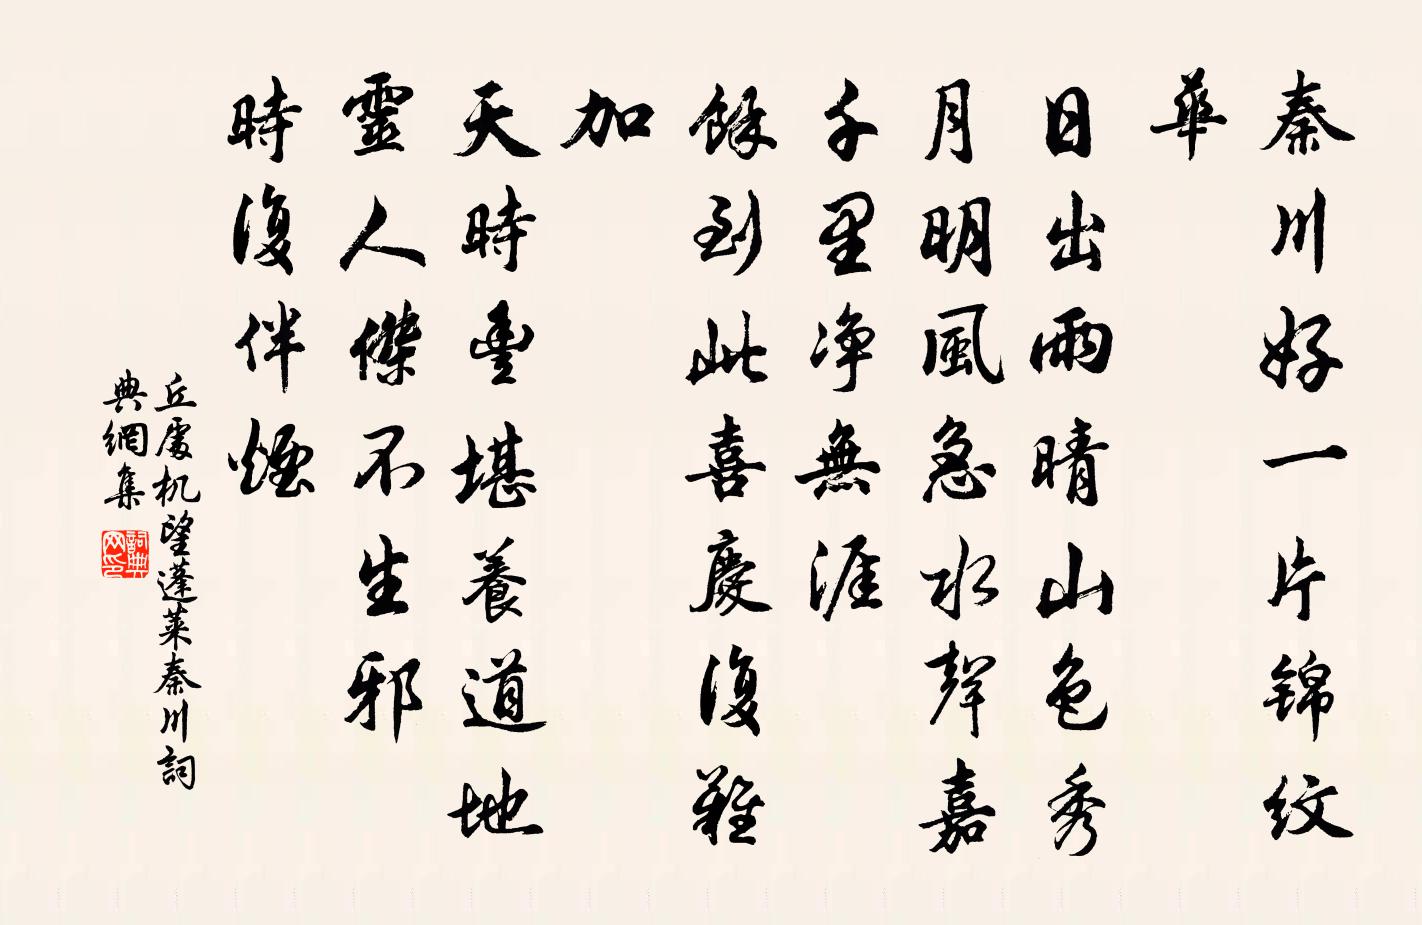 秦川好一片锦纹
華
日出雨晴山色秀
月明風急水聲嘉
千里净無涯
餘到此喜慶復難
加
天時豊堪養道地
靈人傑不生邪
時復伴煙
丘處机望蓬莱秦川詞
典網集
詞典网印